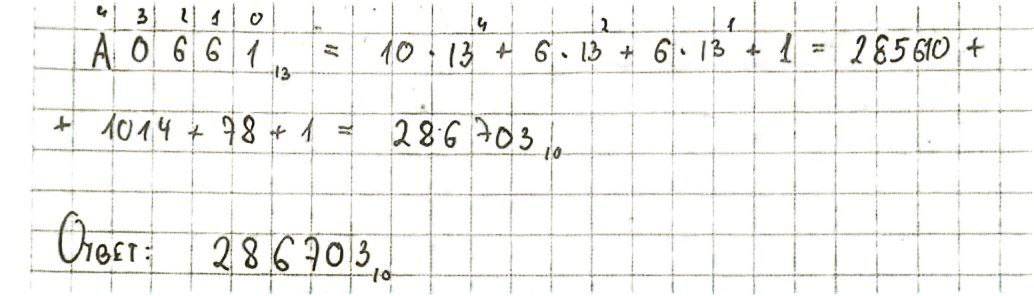 4 3 2 1 0
A0661₁₃ = 10 · 13⁴ + 6 · 13² + 6 · 13¹ + 1 = 285610 +
+ 1014 + 78 + 1 = 286703₁₀
Ответ: 286703₁₀